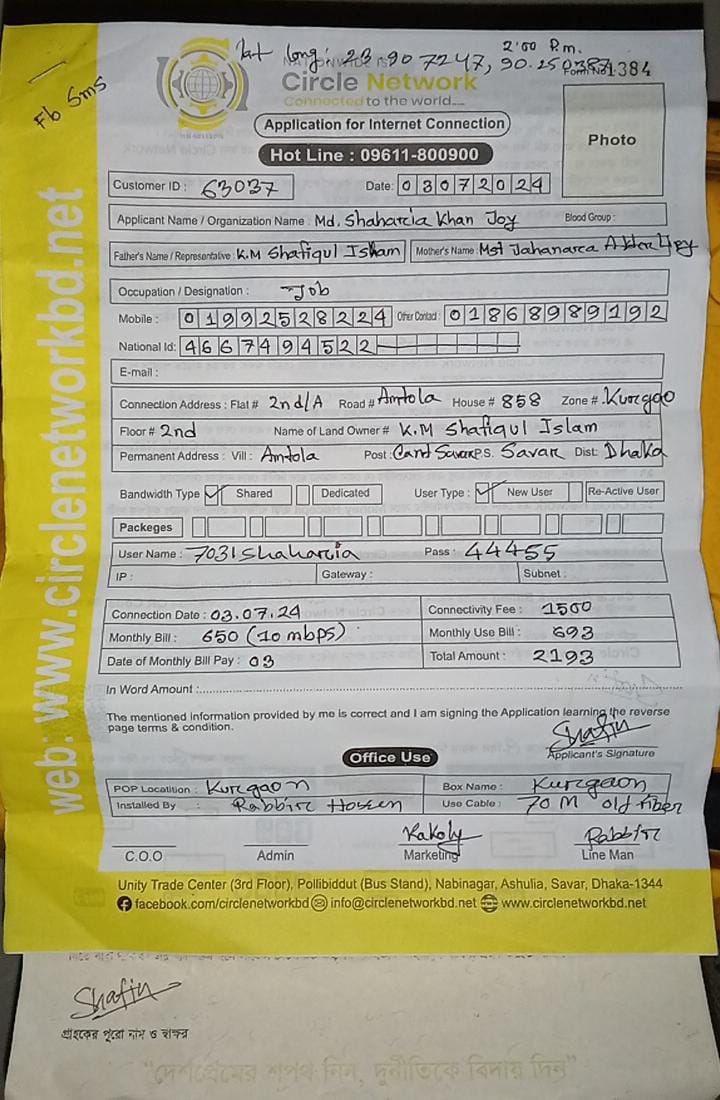 lat long: 23.907247, 90.250387
2:00 p.m.
Fb Sms
NATIONWIDE ISP
Circle Network
Connected to the world....
Form No: 1384
Application for Internet Connection
Hot Line : 09611-800900
Photo
Customer ID : 63037 Date: 03072024
Applicant Name / Organization Name : Md. Shaharia Khan Joy Blood Group :
Father's Name / Representative : K.M Shafiqul Islam Mother's Name : Mst Jahanara Akter
Occupation / Designation : Job
Mobile : 01992528224 Other Contact : 01868989192
National Id: 4667494522
E-mail :
Connection Address : Flat # 2nd/A Road # Amtola House # 858 Zone # Kurgao
Floor # 2nd Name of Land Owner # K.M Shafiqul Islam
Permanent Address : Vill : Amtola Post : Cant Savar P.S. Savar Dist: Dhaka
Bandwidth Type Shared Dedicated User Type : New User Re-Active User
Packeges
User Name : 7031shaharia Pass : 44455
IP : Gateway : Subnet :
Connection Date : 03.07.24 Connectivity Fee : 1500
Monthly Bill : 650 (10 mbps) Monthly Use Bill : 693
Date of Monthly Bill Pay : 03 Total Amount : 2193
In Word Amount :
The mentioned information provided by me is correct and I am signing the Application learning the reverse
page terms & condition.
Shafiu
Applicant's Signature
Office Use
POP Locatition : Kurgaon Box Name : Kurgaon
Installed By : Rabbir Hossen Use Cable : 70 M old fiber
Kakoly Rabbir
C.O.O Admin Marketing Line Man
Unity Trade Center (3rd Floor), Pollibiddut (Bus Stand), Nabinagar, Ashulia, Savar, Dhaka-1344
facebook.com/circlenetworkbd info@circlenetworkbd.net www.circlenetworkbd.net
web: www.circlenetworkbd.net
Shafiu
গ্রাহকের পুরো নাম ও স্বাক্ষর
"দেশপ্রেমের শপথ নিন, দুর্নীতিকে বিদায় দিন"